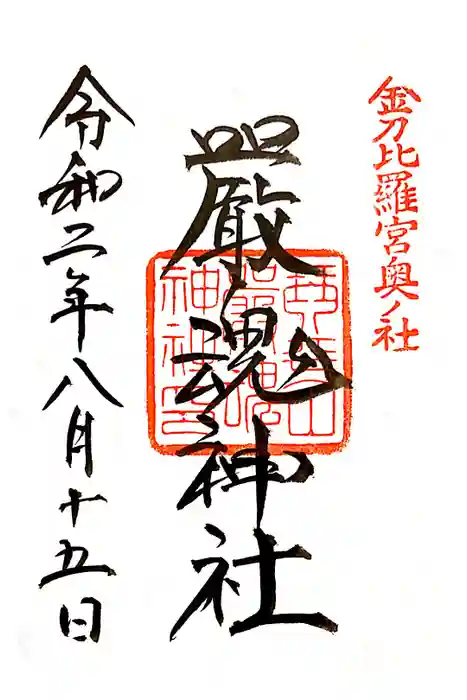 金刀比羅宮奥ノ社
嚴魂神社
琴平山
嚴魂
神社印
令和二年八月十五日